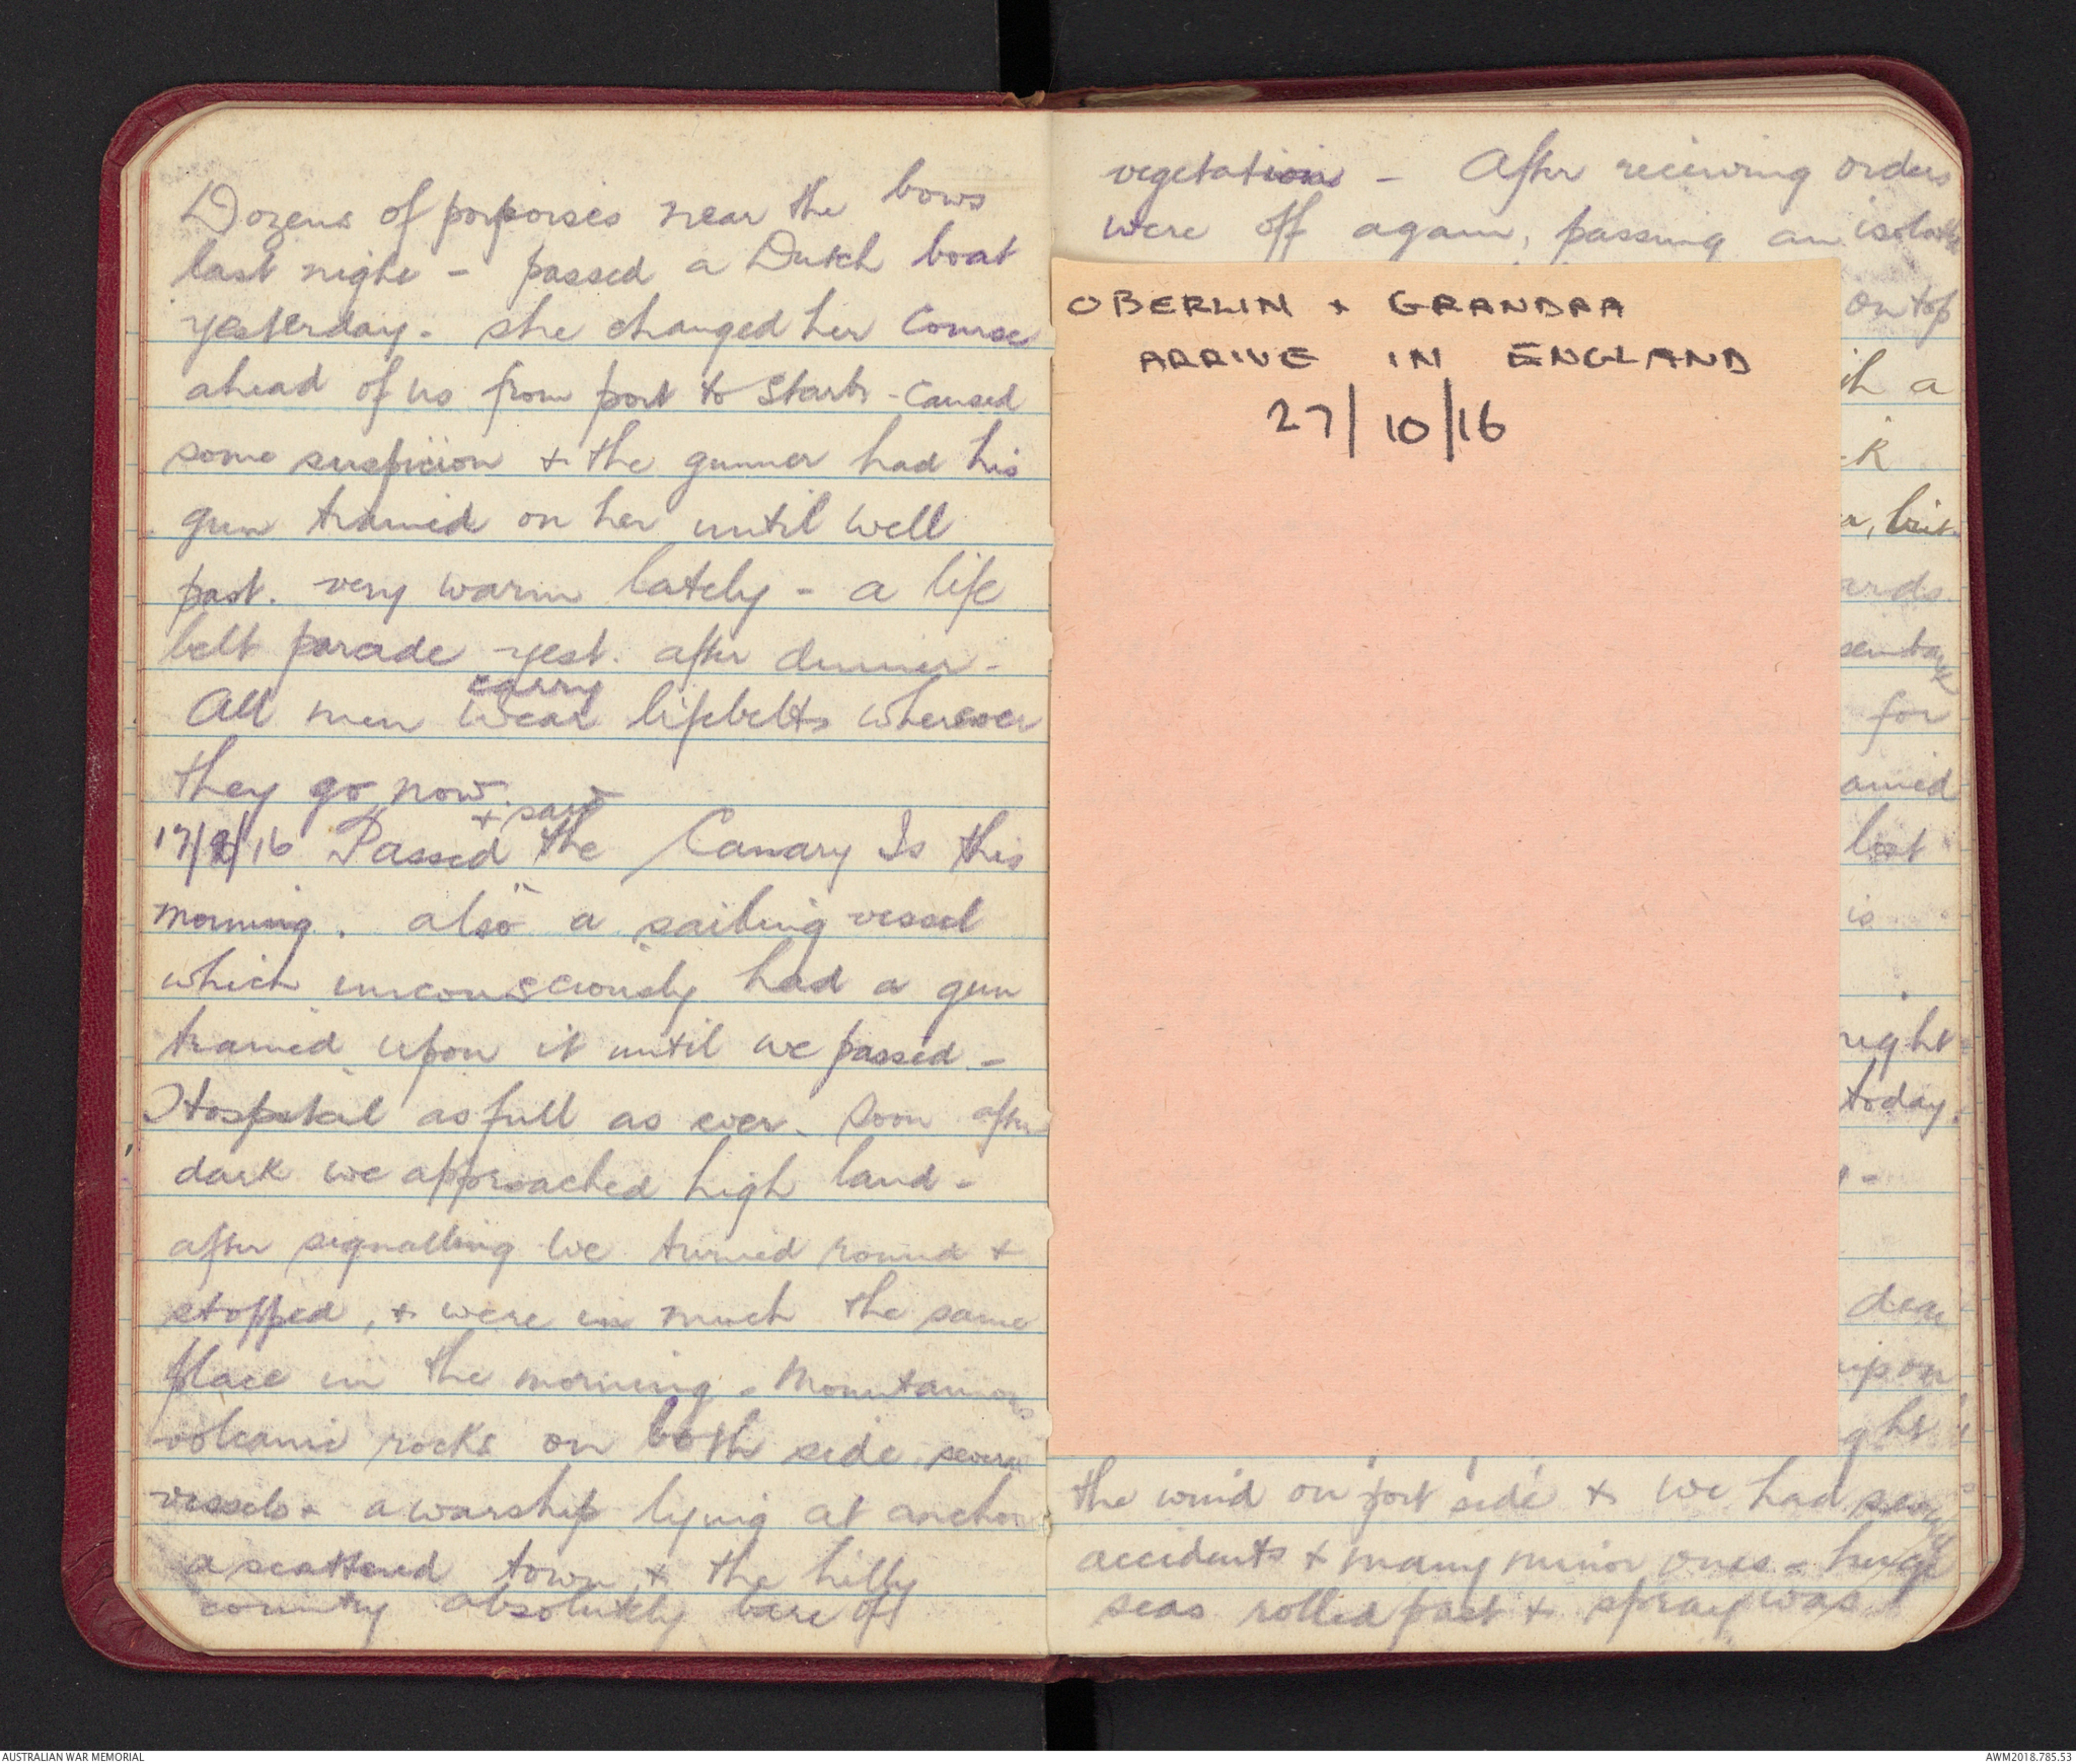 Dozens of porpoises near the bows
last night - passed a Dutch boat
yesterday - she changed her course
ahead of us from port to Starb - Caused
some suspicion + the gunner had his
gun trained on her until well
past. very warm lately - a life
belt parade yest. after dinner -
carry
All men wear lifebelts wherever
they go now.
+ saw
17/9/16 Passed the Canary Is this
morning. also a sailing vessel
which unconsciously had a gun
trained upon it until we passed -
Hospital as full as ever. Soon after
dark we approached high land -
after signalling we turned round +
stopped, + were in much the same
place in the morning - Mountainous
volcanic rocks on both side several
vessels + a warship lying at anchor
a scattered town + the hilly
country absolutely bare of
vegetation - After receiving orders
were off again, passing an isolated
OBERLIN + GRANDPA
ARRIVE IN ENGLAND
27/10/16
on top
a
for
lost
is
today.
upon
the wind on port side + we had several
accidents + many minor ones - huge
seas rolled past + spray was
AUSTRALIAN WAR MEMORIAL
AWM2018.785.53